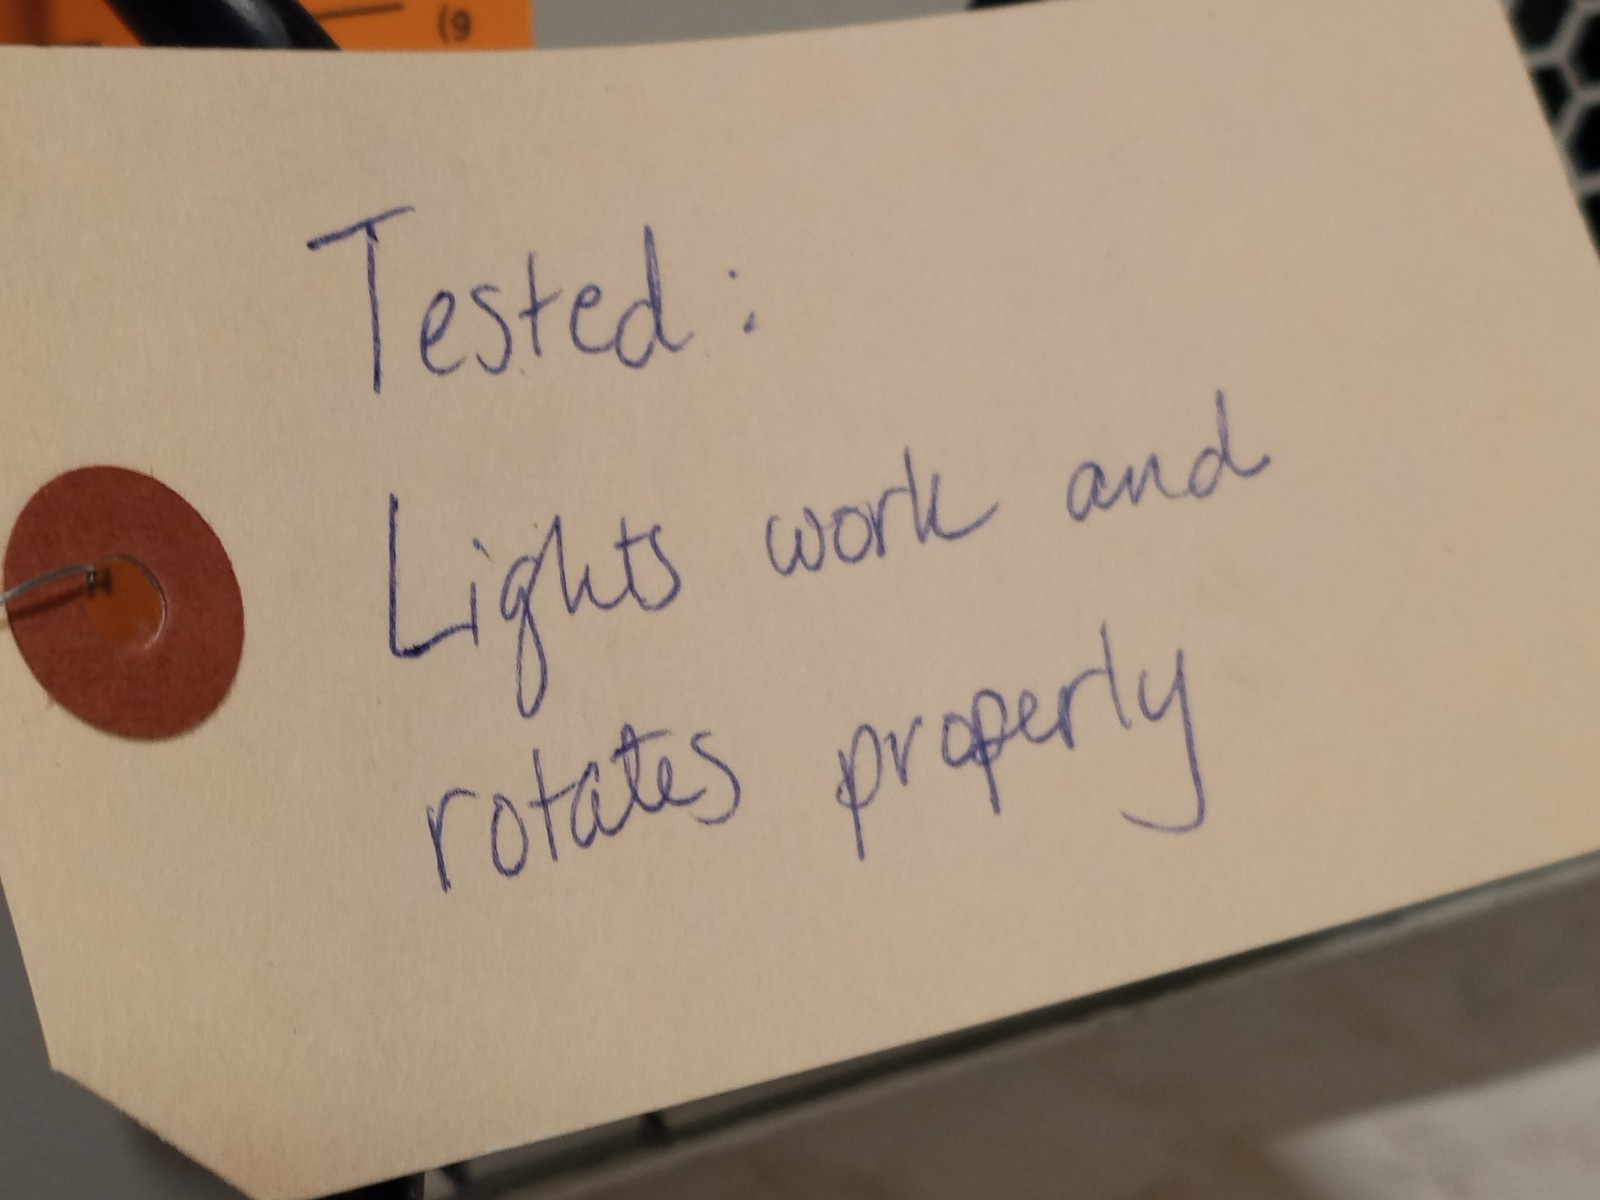 (9
Tested:
Lights work and
rotates properly